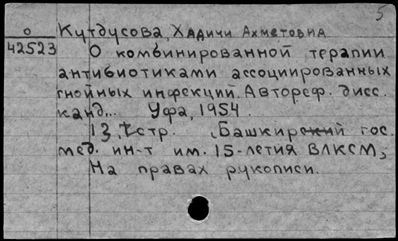 5
О Кутдусова, Хадичи Ахметовна
42523 О комбинированной терапии
антибиотиками ассоциированных
гнойных инфекций. Автореф. дисс.
канд... Уфа, 1954.
13, стр. Башкирский гос.
мед. ин-т им. 15-летия ВЛКСМ,
На правах рукописи.